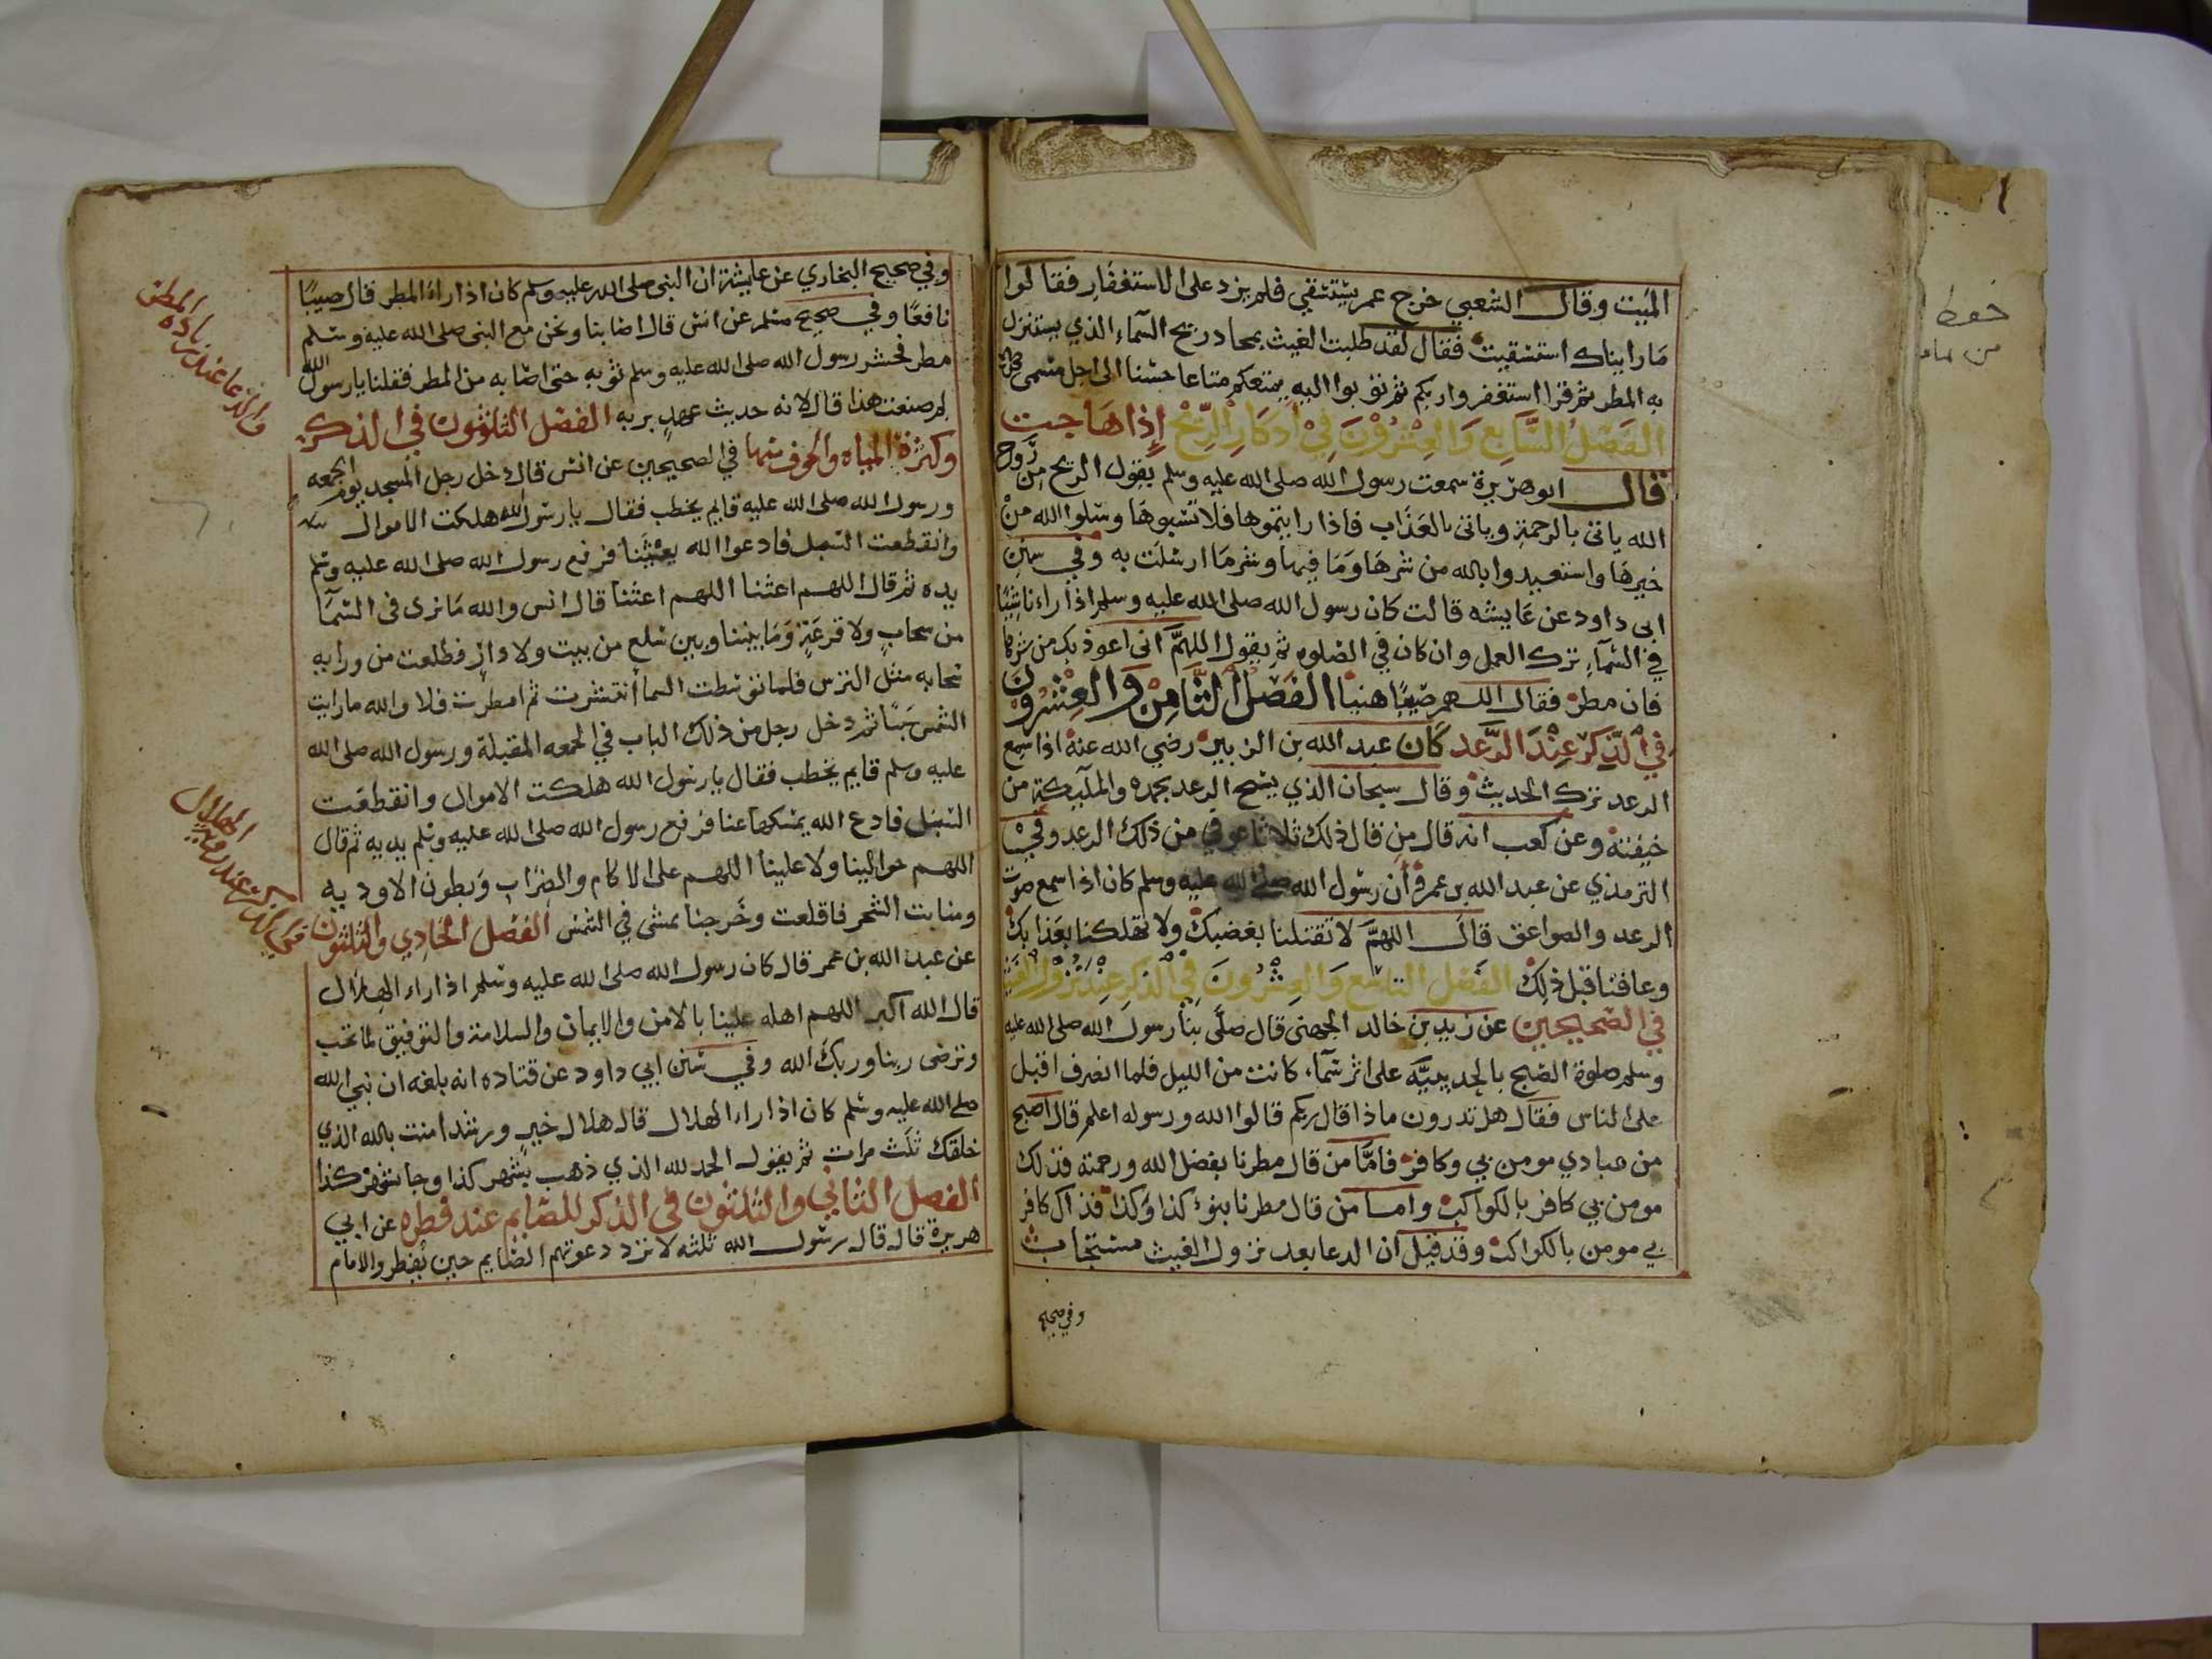 الميت وقال الشعبي خرج عمر يستسقي فلم يزد على الاستغفار فقالوا
ما رايناك استسقيت فقال لقد طلبت الغيث بمجاديح السماء الذي يستنزل
به المطر ثم قرا استغفروا ربكم ثم توبوا اليه يمتعكم متاعا حسنا الى اجل مسمى
الفصل السابع والعشرون في اذكار الريح إذا هاجت
قال ابو هريرة سمعت رسول الله صلى الله عليه وسلم يقول الريح من روح
الله ياتى بالرحمة وياتى بالعذاب فاذا رايتموها فلا تسبوها وسلوا الله من
خيرها واستعيدوا بالله من شرها وما فيها وشر ما ارسلت به وفي سنن
ابى داود عن عايشه قالت كان رسول الله صلى الله عليه وسلم اذا راء ناشيا
في السماء ترك العمل وان كان في الصلوه ثم يقول اللهم انى اعوذ بك من شرها
فان مطر فقال اللهم صيبا هنيا الفصل الثامن والعشرون
في الذكر عند الرعد كان عبد الله بن الزبير رضي الله عنه اذا سمع
الرعد ترك الحديث وقال سبحان الذي يسبح الرعد بحمده والملآيكة من
خيفته وعن كعب انه قال من قال ذلك ثلاثا عوفي من ذلك الرعد وفي
الترمذي عن عبد الله بن عمر أن رسول الله صلى الله عليه وسلم كان اذا سمع صوت
الرعد والصواعق قال اللهم لا تقتلنا بغضبك ولا تهلكنا بعذابك
وعافنا قبل ذلك الفصل التاسع والعشرون في الذكر عند نزول الغيث
في الصحيحين عن زيد بن خالد الجهنى قال صلى بنا رسول الله صلى الله عليه
وسلم صلوة الصبح بالحديبية على اثر سماء كانت من الليل فلما انصرف اقبل
على الناس فقال هل تدرون ماذا قال ربكم قالوا الله ورسوله اعلم قال اصبح
من عبادي مومن بي وكافر فاما من قال مطرنا بفضل الله ورحمته فذلك
مومن بي كافر بالكواكب واما من قال مطرنا بنوء كذا وكذا فذاك كافر
بي مومن بالكواكب وقد قيل ان الدعا بعد نزول الغيث مستجاب
وفي صحيح
وفي صحيح البخاري عن عايشة ان النبى صلى الله عليه وسلم كان اذا راء المطر قال صيبا
نافعا وفي صحيح مسلم عن انس قال اصابنا ونحن مع النبى صلى الله عليه وسلم
مطر فحسر رسول الله صلى الله عليه وسلم ثوبه حتى اصابه من المطر فقلنا يا رسول الله
لم صنعت هذا قال لانه حديث عهد بربه الفصل الثلثون في الذكر
والدعا عند زياده المطر
وكثرة المياه والخوف منها في الصحيحين عن انس قال دخل رجل المسجد يوم الجمعه
ورسول الله صلى الله عليه قايم يخطب فقال يا رسول الله هلكت الاموال
وانقطعت السبل فادعوا الله يغيثنا فرفع رسول الله صلى الله عليه وسلم
يده ثم قال اللهم اغثنا اللهم اغثنا قال انس والله ما نرى في السماء
من سحاب ولا قزعة وما بيننا وبين سلع من بيت ولا دار فطلعت من ورايه
سحابه مثل الترس فلما توسطت السماء انتشرت ثم امطرت فلا والله ما رايت
الشمس سبتا ثم دخل رجل من ذلك الباب في الجمعه المقبلة ورسول الله صلى الله
عليه وسلم قايم يخطب فقال يا رسول الله هلكت الاموال وانقطعت
السبل فادع الله يمسكها عنا فرفع رسول الله صلى الله عليه وسلم يديه ثم قال
اللهم حوالينا ولا علينا اللهم على الاكام والضراب وبطون الاوديه
ومنابت الشجر فاقلعت وخرجنا نمشى في الشمس الفصل الحادي والثلثون
عند رؤية الهلال
عن عبد الله بن عمر قال كان رسول الله صلى الله عليه وسلم اذا راء الهلال
قال الله اكبر اللهم اهله علينا بالامن والايمان والسلامة والتوفيق لما تحب
وترضى ربنا وربك الله وفي سنن ابي داود عن قتاده انه بلغه ان نبي الله
صلى الله عليه وسلم كان اذا راء الهلال قال هلال خير ورشد امنت بالله الذي
خلقك ثلث مرات ثم يقول الحمد لله الذي ذهب بشهر كذا وجا بشهر كذا
الفصل الثاني والثلثون في الذكر للصايم عند فطره عن ابي
هريرة قال قال رسول الله ثلثه لا ترد دعوتهم الصايم حين يفطر والامام